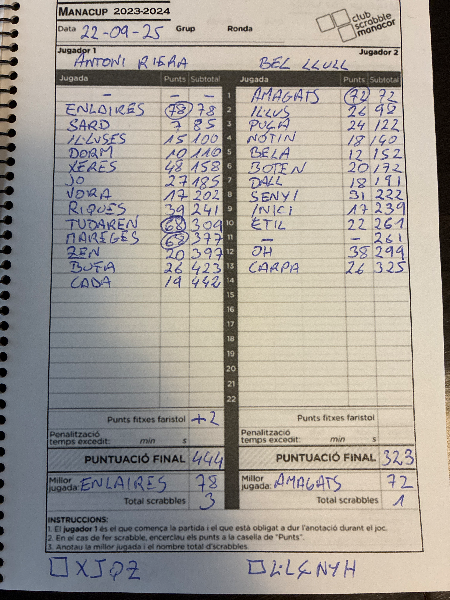 MANACUP 2023-2024
club scrabble manacor
Data 22-09-25 Grup Ronda
Jugador 1 Jugador 2
ANTONI RIERA BEL LLULL
Jugada Punts Subtotal Jugada Punts Subtotal
— — — 1 AMAGATS 72 72
ENLAIRES 78 78 2 ILLUS 26 98
SARD 7 85 3 PUGA 24 122
IL·LUSES 15 100 4 NOTIN 18 140
DORM 10 110 5 BELA 12 152
XERES 48 158 6 BOTEN 20 172
JO 27 185 7 DALL 18 191
VORA 17 202 8 SENYI 31 222
RIQUES 39 241 9 INICI 17 239
TUDAREN 68 309 10 ETIL 22 261
MAREGES 68 377 11 — — 261
ZEN 20 397 12 OH 38 299
BUFIA 26 423 13 CARPA 26 325
CADA 19 442 14
15
16
17
18
19
20
21
22
Punts fitxes faristol +2 Punts fitxes faristol
Penalització temps excedit: min s Penalització temps excedit: min s
PUNTUACIÓ FINAL 444 PUNTUACIÓ FINAL 323
Millor jugada: ENLAIRES 78 Millor jugada: AMAGATS 72
Total scrabbles 3 Total scrabbles 1
INSTRUCCIONS:
1. El jugador 1 és el que comença la partida i el que està obligat a dur l'anotació durant el joc.
2. En el cas de fer scrabble, encerclau els punts a la casella de "Punts".
3. Anotau la millor jugada i el nombre total d'scrabbles.
XJQZ